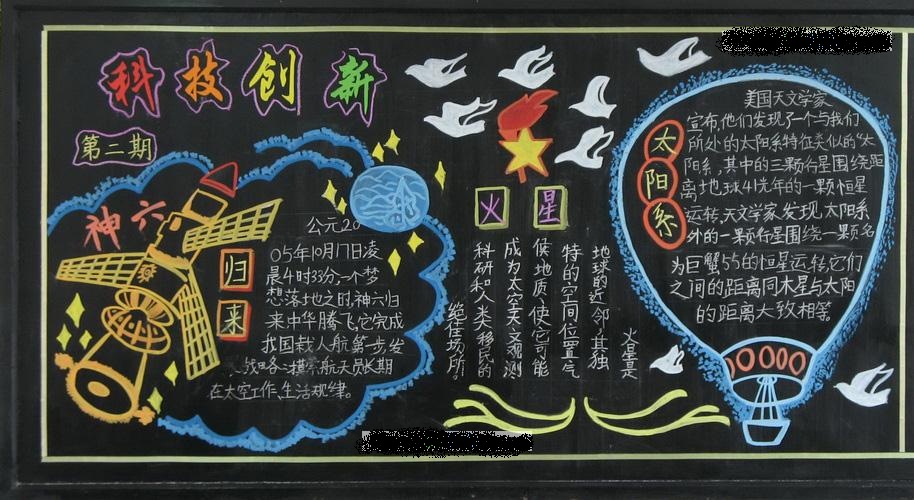 科技创新
第二期
神六
归来
公元20
05年10月17日凌
晨4时33分,一个梦
想落地之时,神六归
来中华腾飞,它完成
我国载人航第步发
航天员长期
在太空工作、生活规律。
火星
火星是
地球的近邻,其独
特的空间位置气
候地质,使它可能
成为太空天文观测
科研和人类移民的
绝佳场所。
太阳系
美国天文学家
宣布,他们发现了一个与我们
所处的太阳系特征类似的“太
阳系,其中的三颗行星围绕距
离地球41光年的一颗恒星
运转,天文学家发现,太阳系
外的一颗行星围绕一颗名
为巨蟹55的恒星运转,它们
之间的距离同木星与太阳
的距离大致相等。